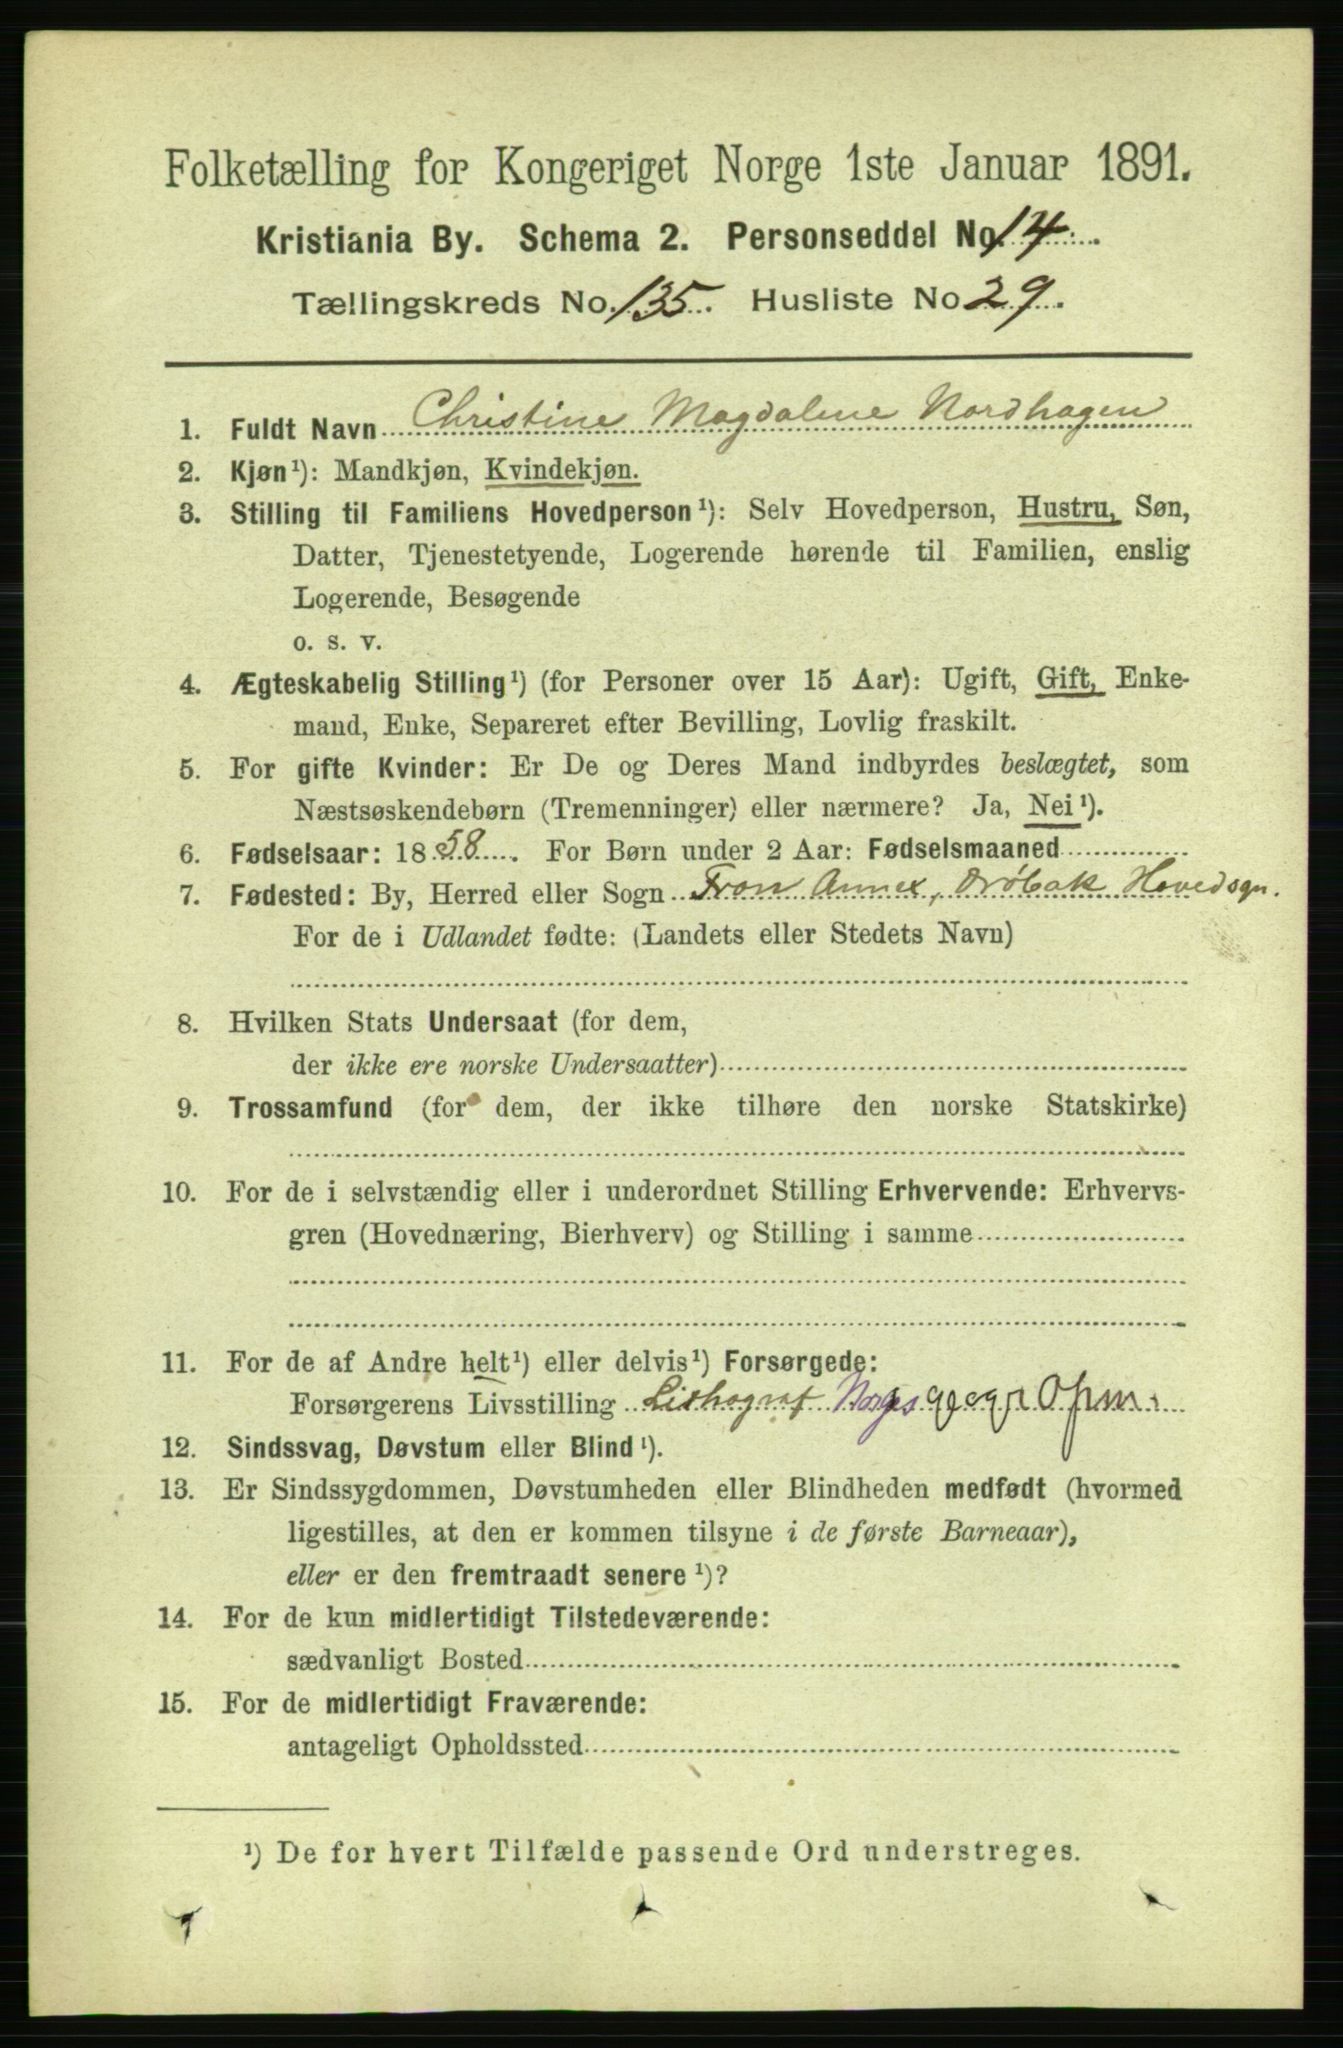 Folketælling for Kongeriget Norge 1ste Januar 1891.
Kristiania By. Schema 2. Personseddel No. 14.
Tællingskreds No. 135. Husliste No 29.
1. Fuldt Navn Christine Magdalene Nordhagen
2. Kjøn¹): Mandkjøn, Kvindekjøn.
3. Stilling til Familiens Hovedperson¹): Selv Hovedperson, Hustru, Søn,
Datter, Tjenestetyende, Logerende hørende til Familien, enslig
Logerende, Besøgende
o. s. v.
4. Ægteskabelig Stilling¹) (for Personer over 15 Aar): Ugift, Gift, Enke-
mand, Enke, Separeret efter Bevilling, Lovlig fraskilt.
5. For gifte Kvinder: Er De og Deres Mand indbyrdes beslægtet, som
Næstsøskendebørn (Tremenninger) eller nærmere? Ja, Nei¹).
6. Fødselsaar: 1858. For Børn under 2 Aar: Fødselsmaaned
7. Fødested: By, Herred eller Sogn Fron Annex, Drøbak Hovedsgn.
For de i Udlandet fødte: (Landets eller Stedets Navn)
8. Hvilken Stats Undersaat (for dem,
der ikke ere norske Undersaatter)
9. Trossamfund (for dem, der ikke tilhøre den norske Statskirke)
10. For de i selvstændig eller i underordnet Stilling Erhvervende: Erhvervs-
gren (Hovednæring, Bierhverv) og Stilling i samme
11. For de af Andre helt¹) eller delvis¹) Forsørgede:
Forsørgerens Livsstilling Lithograf Norges geogr Opm.
12. Sindssvag, Døvstum eller Blind¹).
13. Er Sindssygdommen, Døvstumheden eller Blindheden medfødt (hvormed
ligestilles, at den er kommen tilsyne i de første Barneaar),
eller er den fremtraadt senere¹)?
14. For de kun midlertidigt Tilstedeværende:
sædvanligt Bosted
15. For de midlertidigt Fraværende:
antageligt Opholdssted
¹) De for hvert Tilfælde passende Ord understreges.